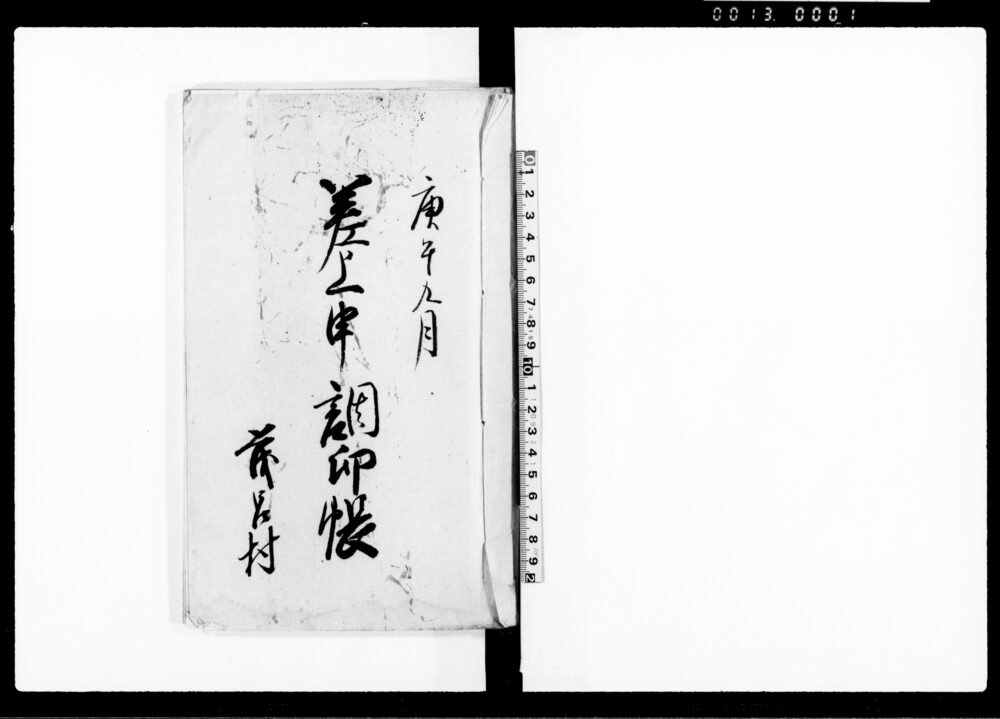 0013 0001
庚午九月
差上申調印帳
茂呂村
0 1 2 3 4 5 6 7 8 9 10 1 2 3 4 5 6 7 8 9 2